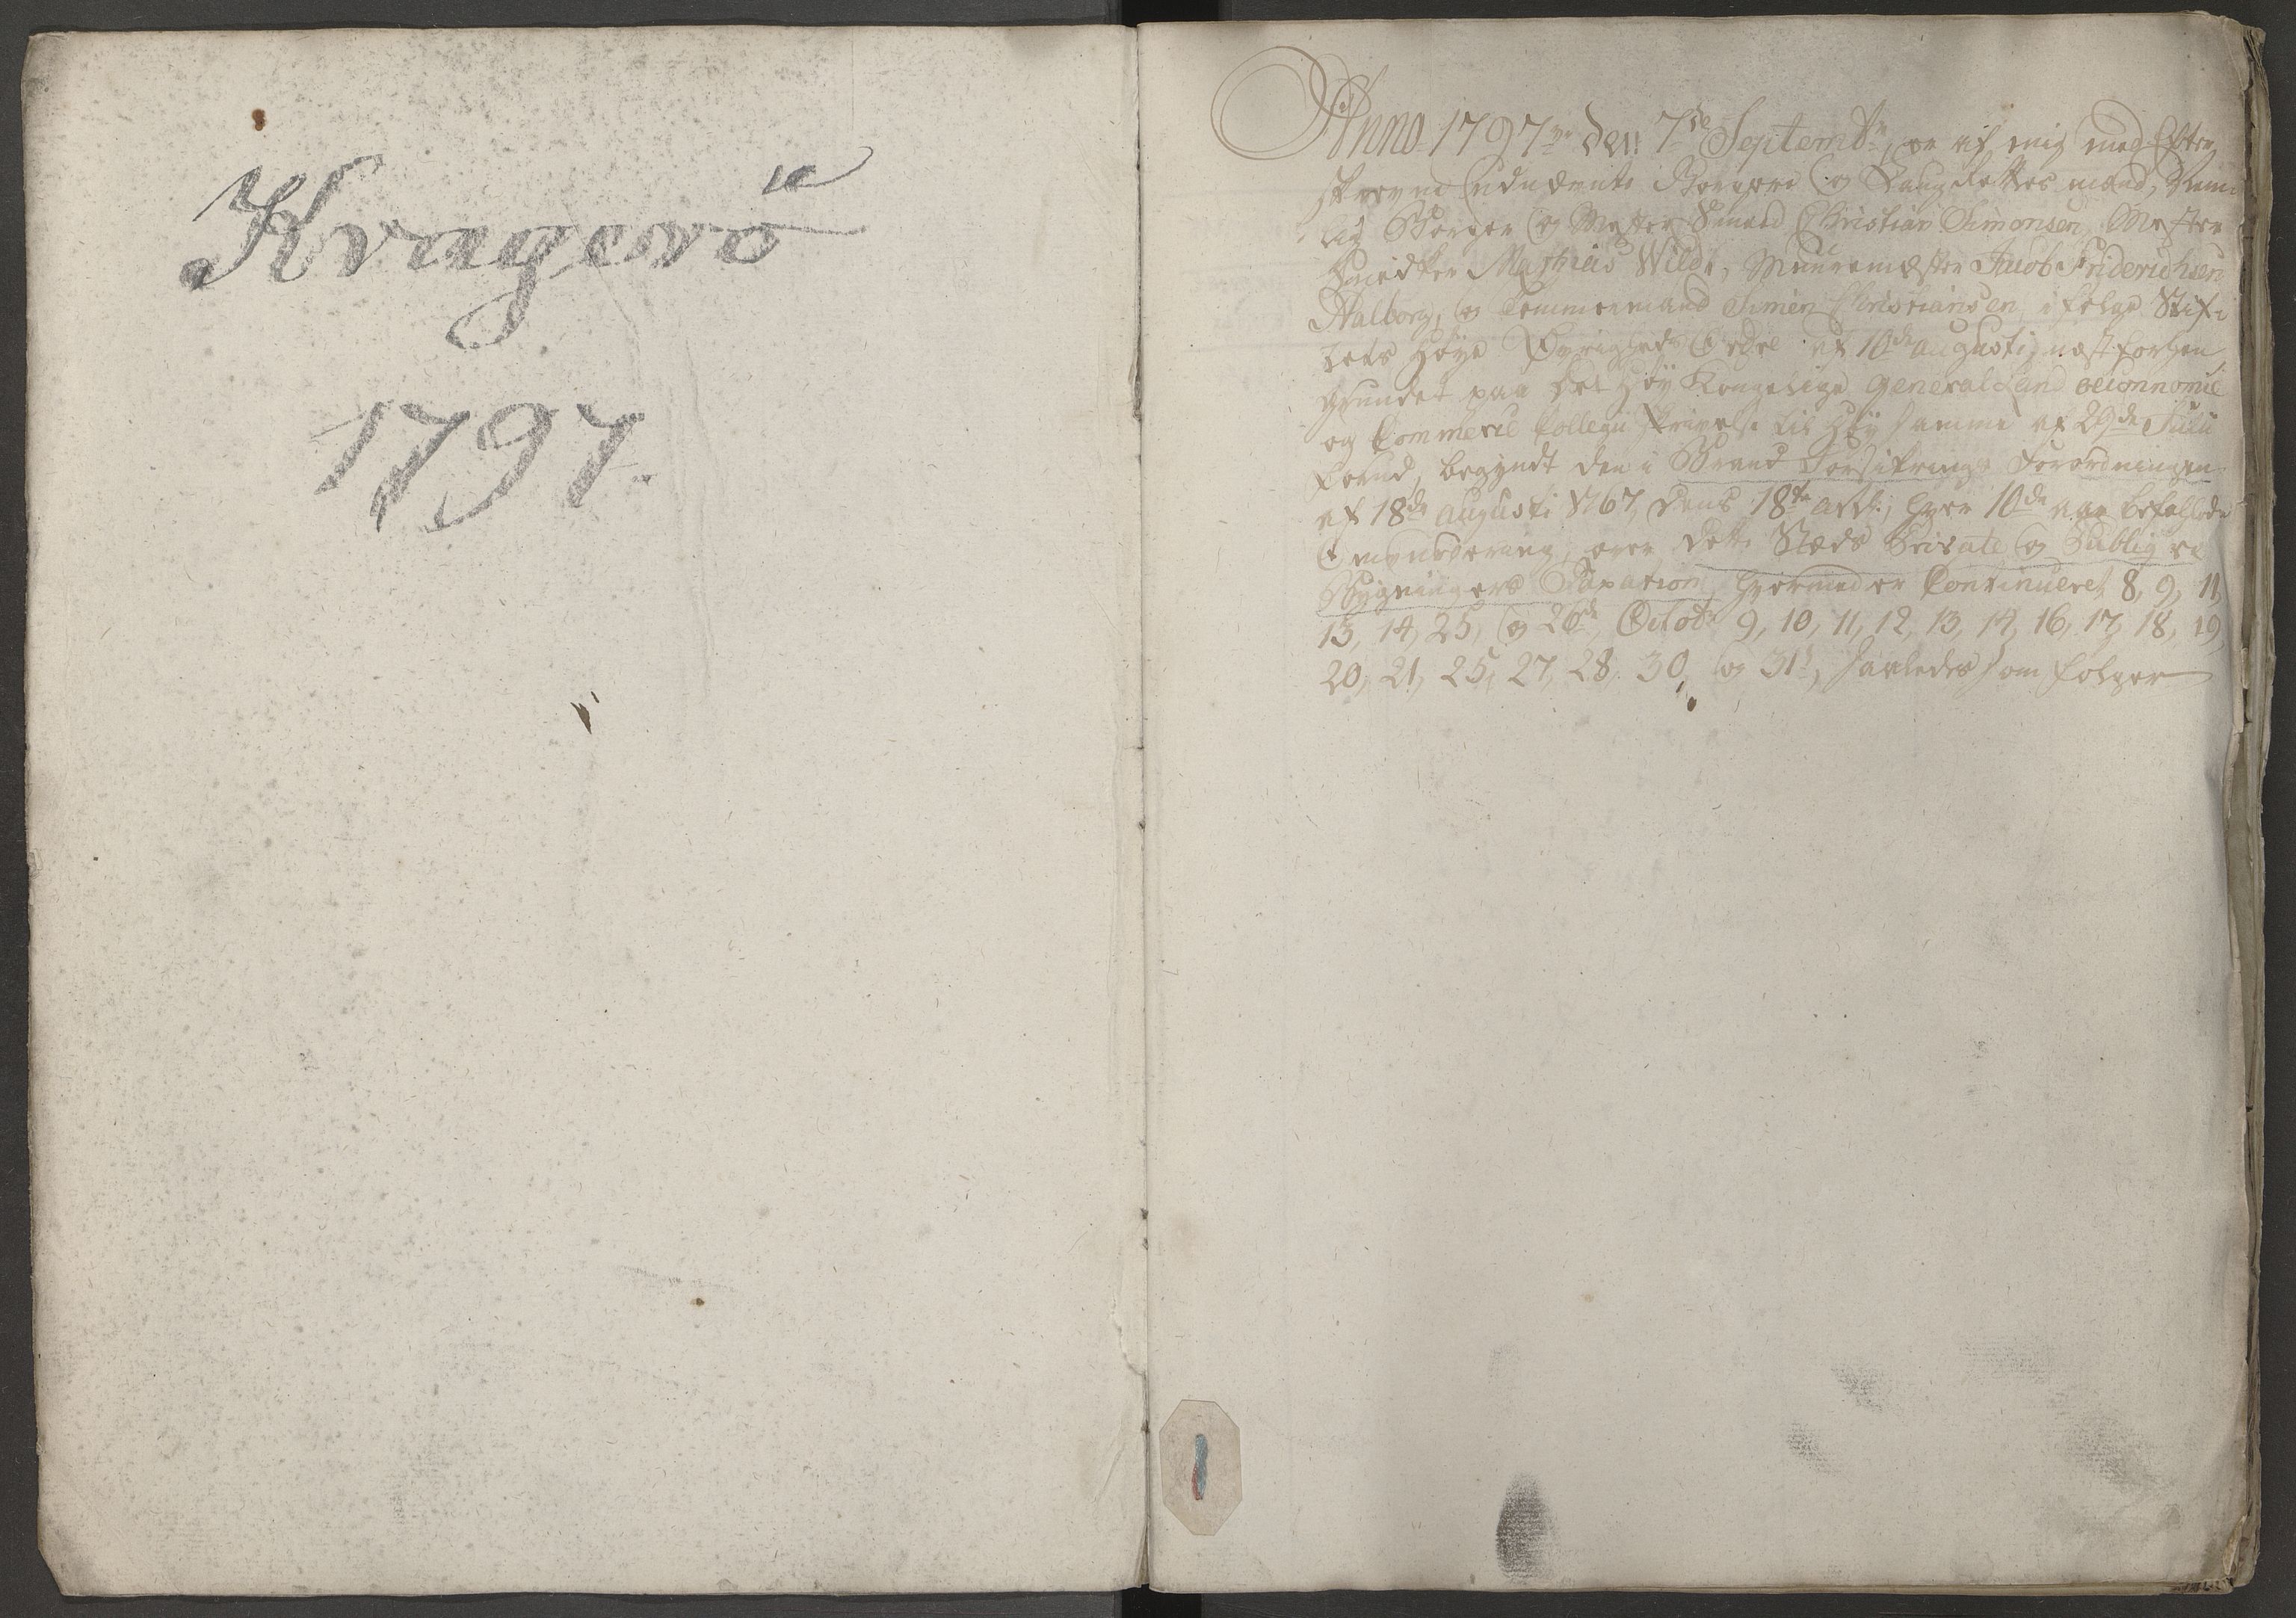 Kragerö
1797.
Anno 1797 den 7de Septembr, er af mig med Efter
skrevne udnævnte Borgere og Laugrettes mænd, Nem
lig Borger og Mester Smed Christian Simonsen, Mester
Snedker Mathias Wilde, Muuremester Jacob Friderichsen
Aalborg, og Tømmermand Simen Christiansen, i følge Stif-
tets Høye Øvrigheds Ordre af 10de augusti næstforhen
grundet paa Det Høy Kongelige General Land oeconnomie
og Commerce Collegii skrivelse til Høysamme af 29de Julii
forud, begyndt den i Brand Forsikrings Forordningen
af 18de augusti 1767, dens 18de art:, hver 10de aar befallede
Omvurdering, over dette Stæds Private og Publiqve
Bygningers Taxation, hvormed er Continueret 8, 9, 11,
13, 14, 25, og 26de, Octobr 9, 10, 11, 12, 13, 14, 16, 17, 18, 19,
20, 21, 25, 27, 28, 30, og 31t, saaledes som følger